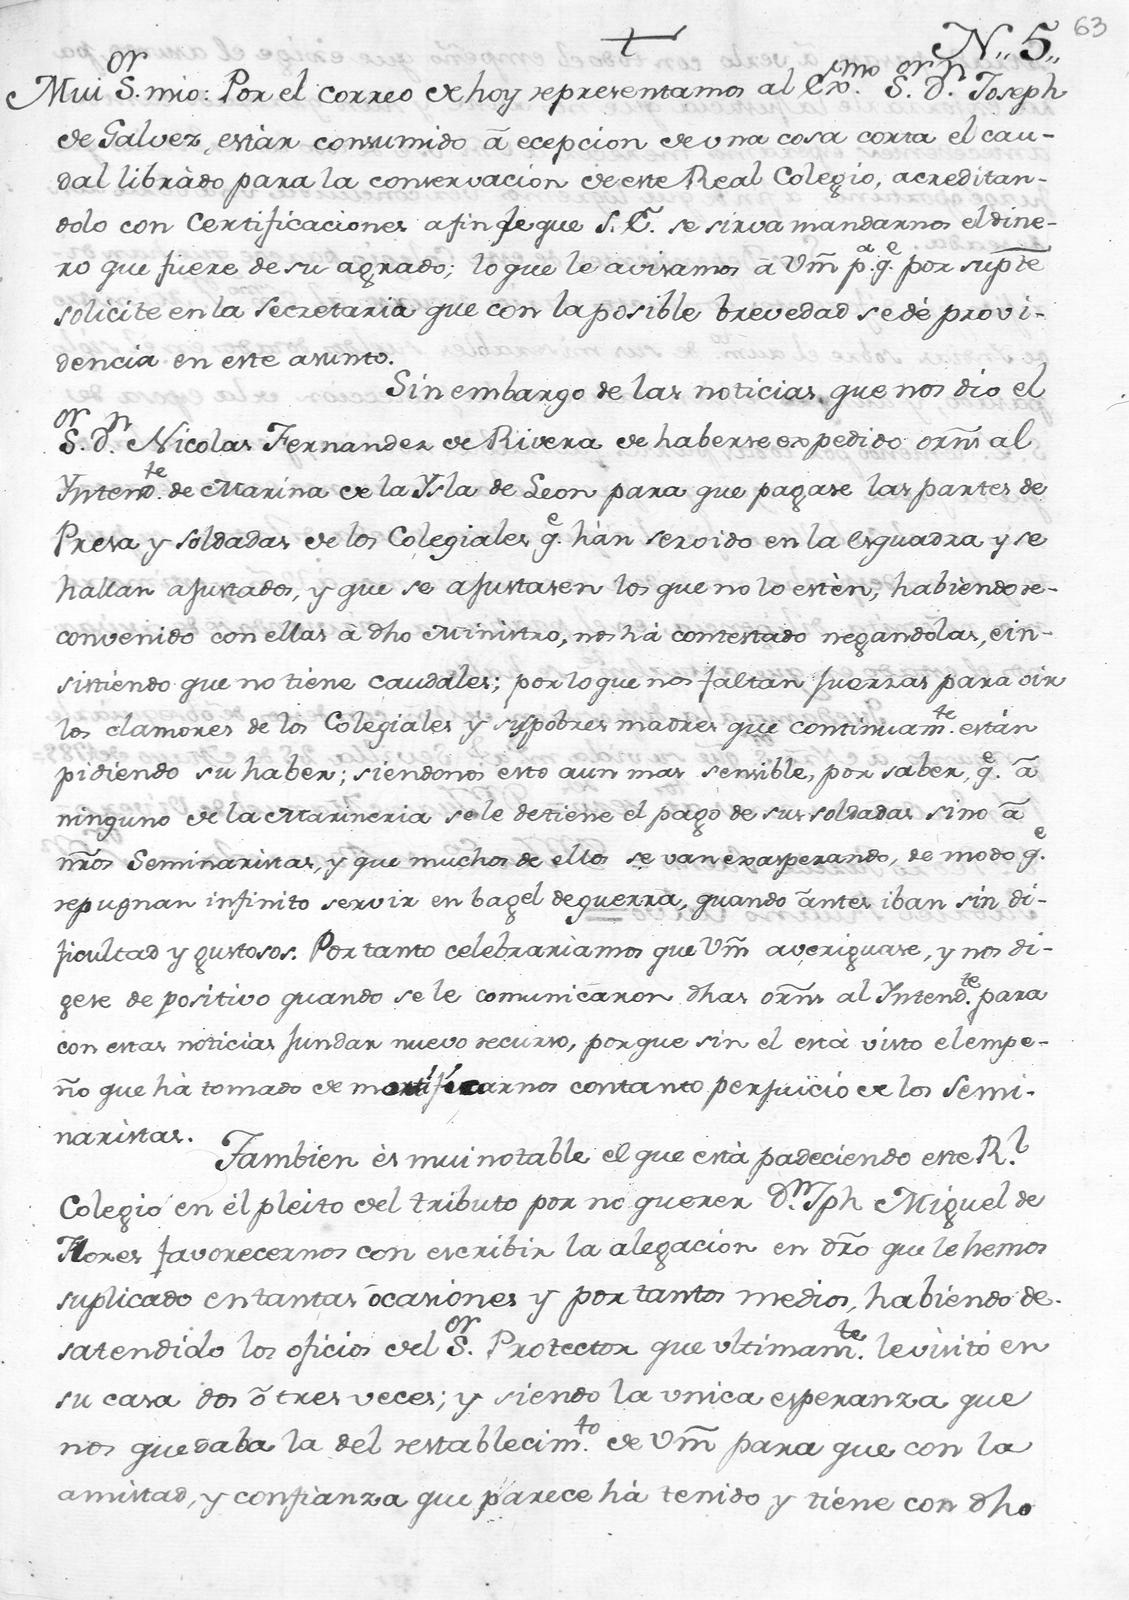 63
N.. 5..
Mui S.or mio: Por el correo de hoy representamos al Ex.mo S.or D.n Joseph
de Galvez, estàr consumido ã ecepcion de una cosa corta el cau-
dal librado para la conservacion de este Real Colegio, acreditan-
dolo con Certificaciones afin de que S. E. se sirva mandarnos el dine-
ro que fuere de su agrado; lo que le avisamos ã Vm̃ p.a q.e por supte
solicite en la Secretaria que con la posible brevedad se dé provi-
dencia en este asunto.
Sin embargo de las noticias, que nos dio el
S.or D.n Nicolas Fernandez de Rivera de haberse expedido orñs al
Yntend.te de Marina de la Ysla de Leon para que pagase las partes de
Presa y soldadas de los Colegiales q.e hàn servido en la esquadra y se
hallan ajustados, y que se ajustasen los que no lo estèn, habiendo re-
convenido con ellas à dho Ministro, nos hà contestado negandolas, è in-
sistiendo que no tiene caudales; por lo que nos faltan fuerzas para oir
los clamores de los Colegiales y sus pobres madres que continuam.te están
pidiendo su haber; siendonos esto aun mas sensible, por saber, q.e ã
ninguno de la Marineria se le detiene el pago de sus soldadas sino ã
nr̃os Seminaristas, y que muchos de ellos se van exasperando, de modo q.e
repugnan infinito servir en bagel de guerra, quando ãntes iban sin di-
ficultad y gustosos. Por tanto celebrariamos que Vm̃ averiguase, y nos di-
gese de positivo quando se le comunicàron dhas orñs al Yntend.te para
con estas noticias fundar nuevo recurso, porque sin el està visto el empe-
ño que hà tomado de mortificarnos con tanto perjuicio de los Semi-
naristas.
Tambien ès mui notable el que està padeciendo este R.l
Colegio en el pleito del tributo por no querer D.n Jph Miguel de
Flores favorecernos con escribir la alegacion en dr̃o que le hemos
suplicado en tantas ôcasiones y por tantos medios, habiendo de-
satendido los oficios del S.or Protector que ultimam.te le visitó en
su casa dos ò tres veces; y siendo la unica esperanza que
nos quedaba la del restablecim.to de Vm̃ para que con la
amistad, y confianza que parece hà tenido y tiene con dho